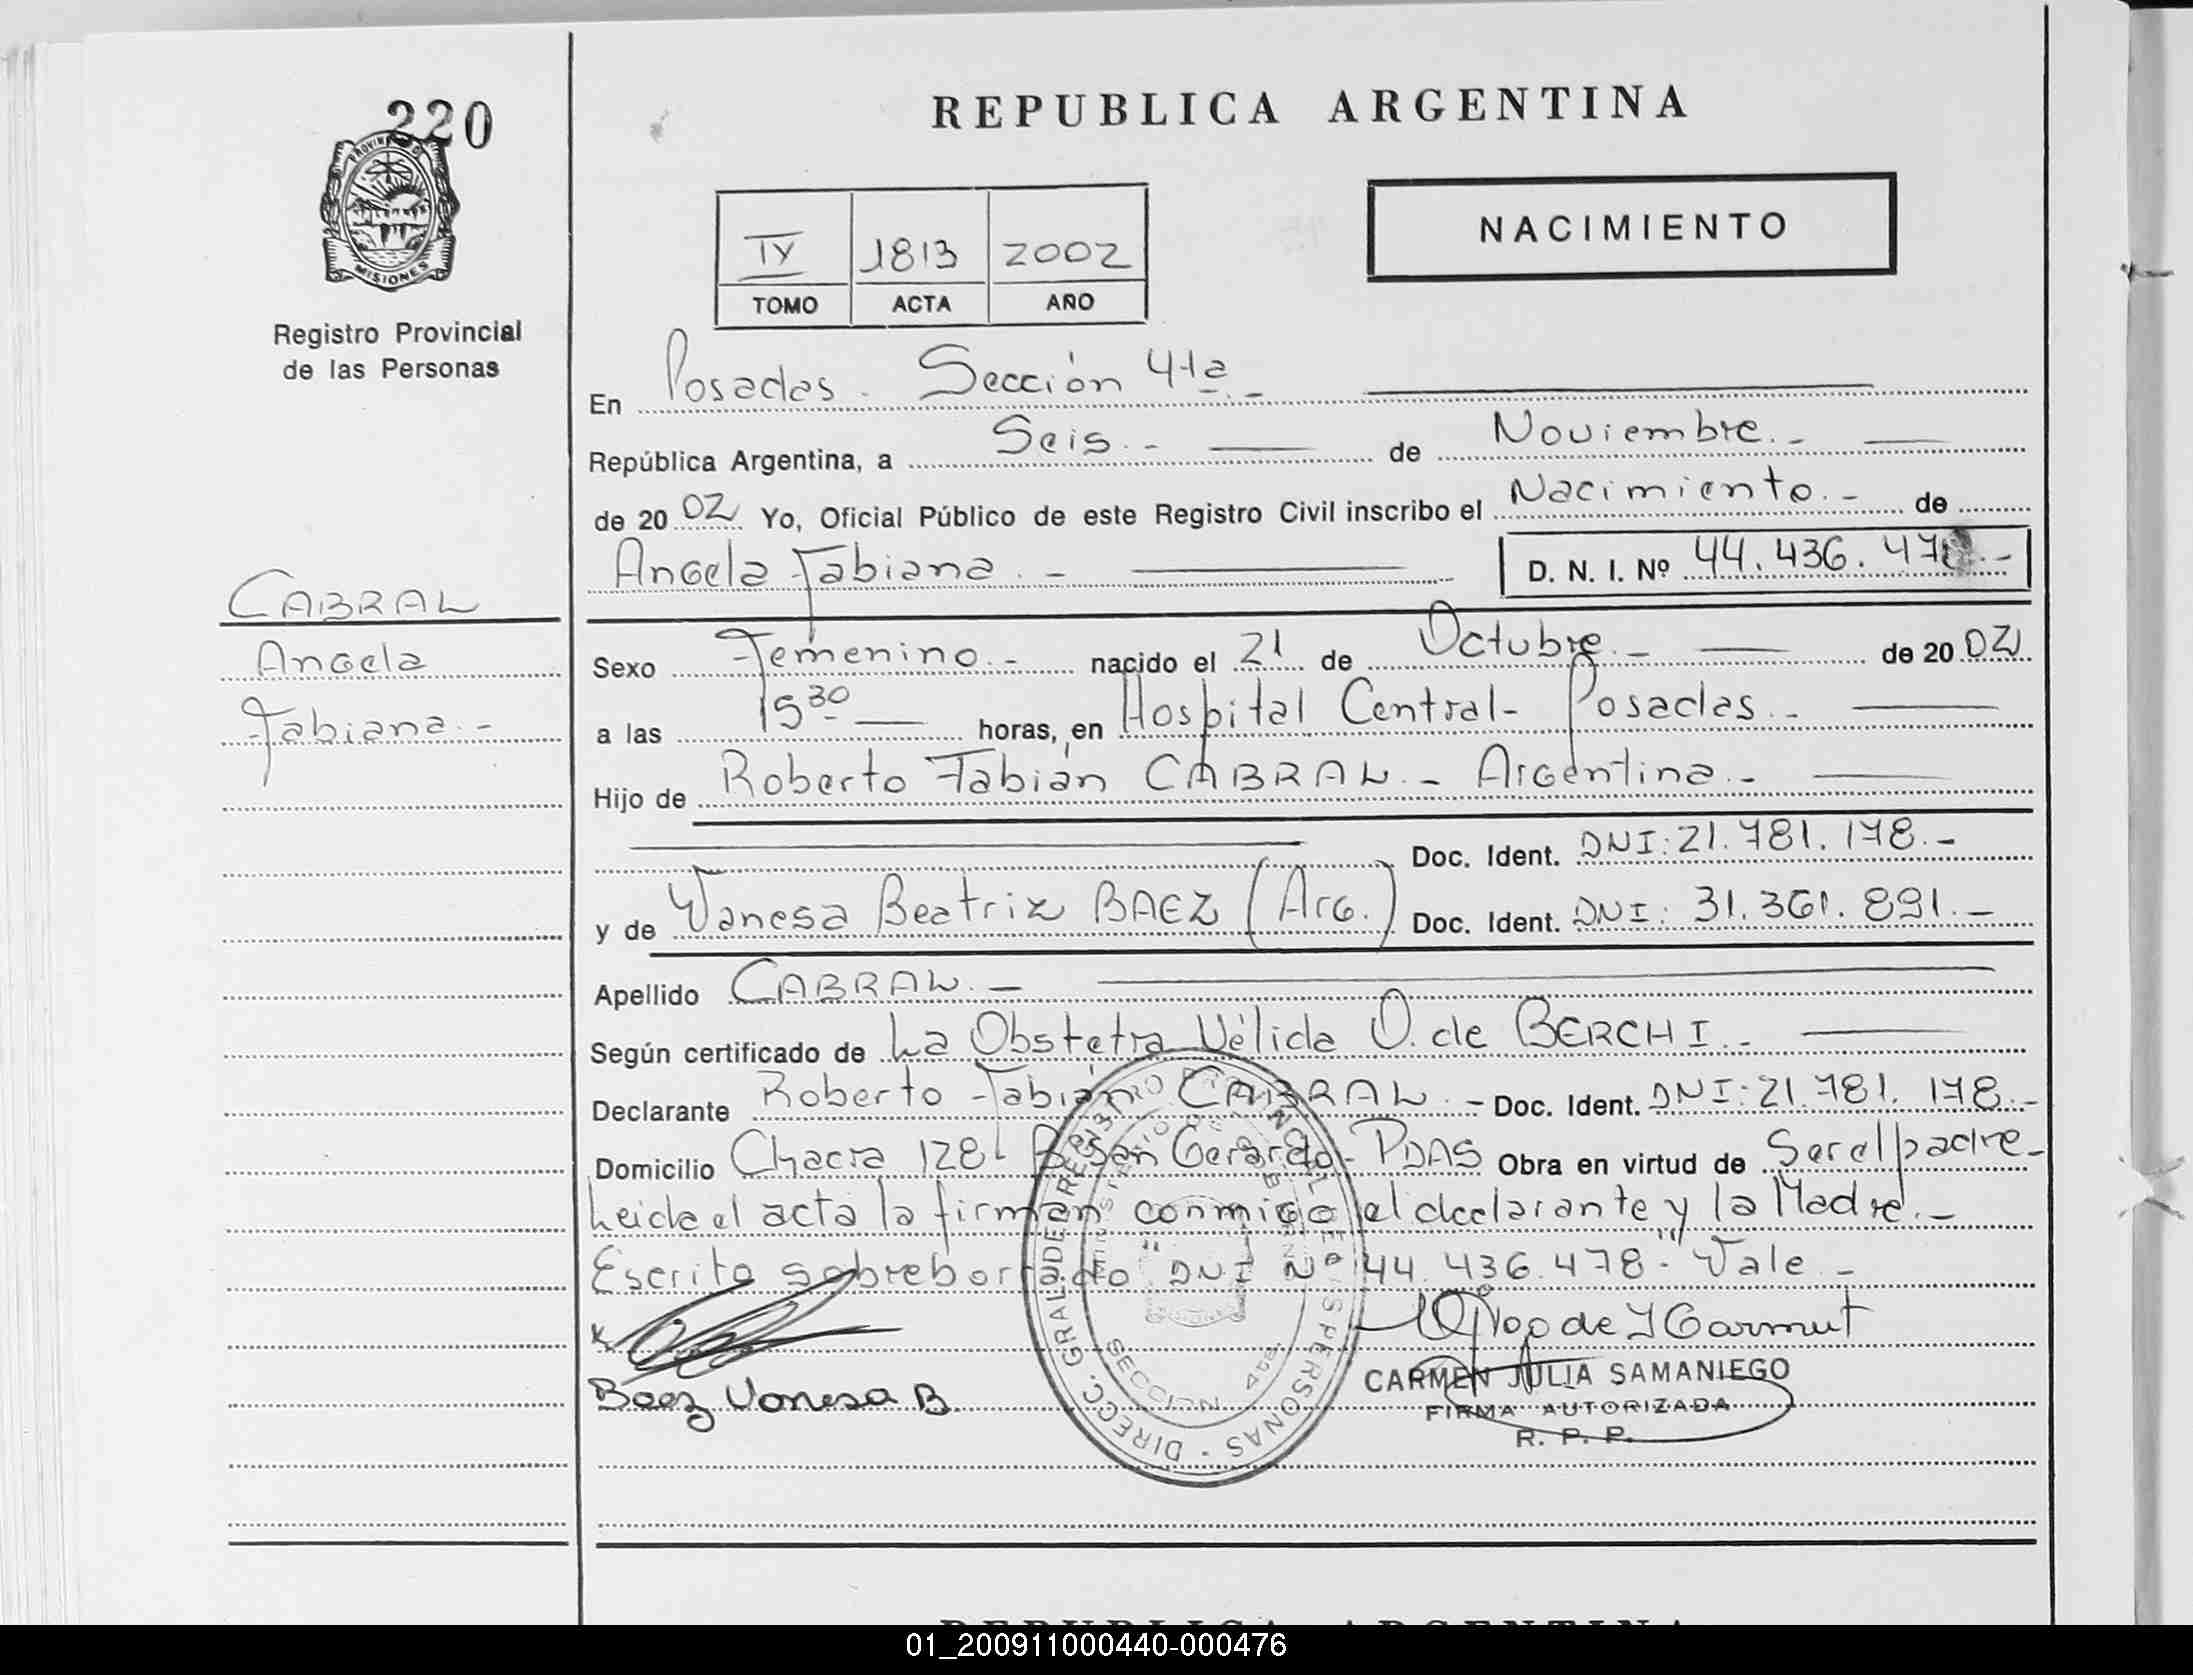 220
REPUBLICA ARGENTINA
PROVINCIA D
MISIONES
Registro Provincial
de las Personas
NACIMIENTO
IV 1813 2002
TOMO ACTA AÑO
En Posadas - Sección 4ta.-
República Argentina, a Seis.- de Noviembre.-
de 2002 Yo, Oficial Público de este Registro Civil inscribo el Nacimiento.- de
Angela Fabiana.- D. N. I. Nº 44.436.478.-
CABRAL
Angela
Fabiana.-
Sexo Femenino.- nacido el 21 de Octubre.- de 2002
a las 15 30 horas, en Hospital Central- Posadas.-
Hijo de Roberto Fabián CABRAL.- Argentina.-
Doc. Ident. DNI: 21.781.178.-
y de Vanesa Beatriz BAEZ (Arg.) Doc. Ident. DNI: 31.361.891.-
Apellido CABRAL.-
Según certificado de La Obstetra Vélida O. de BERCHI.-
Declarante Roberto Fabián CABRAL.- Doc. Ident. DNI: 21.781.178.-
Domicilio Chacra 128- B. San Gerardo- PDAS Obra en virtud de Ser el padre-
Leida el acta la firman conmigo el declarante y la Madre.-
Escrito sobreborrado "DNI Nº 44.436.478" Vale.-
Baez Vanesa B.
CARMEN JULIA SAMANIEGO
FIRMA AUTORIZADA
R. P. P.
DIRECC. GRAL. DE REGISTRO PROVINCIAL DE LAS PERSONAS
SECCION 4ta.
01_200911000440-000476